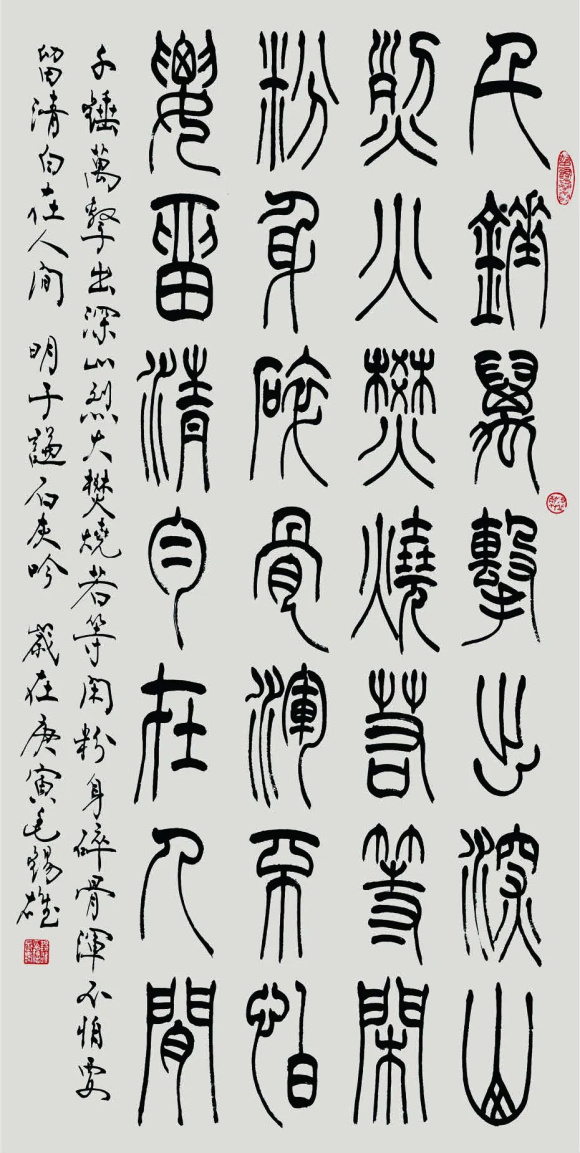 千錘萬擊出深山
烈火焚燒若等閑
粉身碎骨渾不怕
要留清白在人間
千錘萬擊出深山烈火焚燒若等閑粉身碎骨渾不怕要
留清白在人间 明于謙石灰吟 歲在庚寅毛錫雄